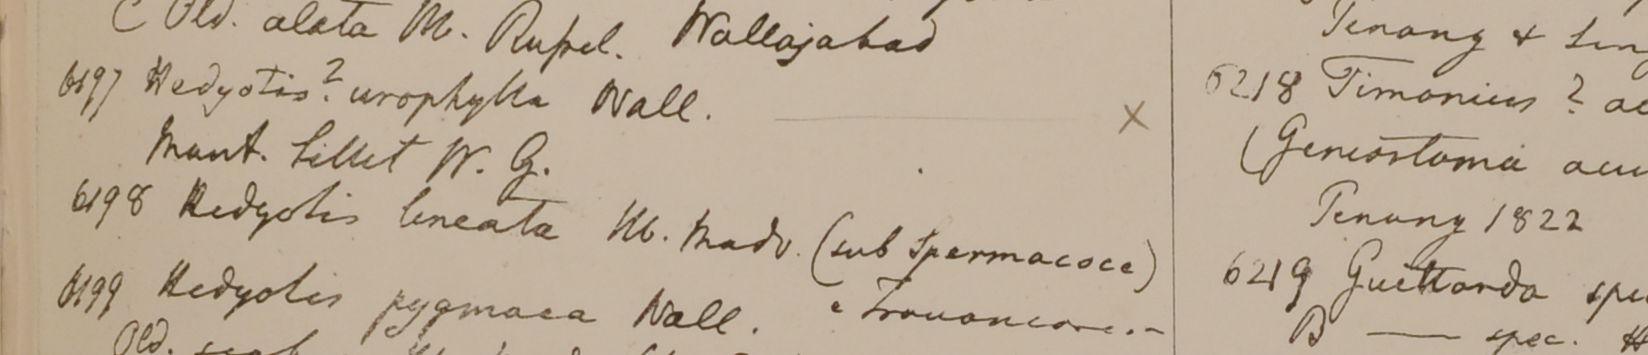 C Old. alata Hb. Russel. Wallajabad
6197 Hedyotis? urophylla Wall.
Mont. Sillet W. G.
6198 Hedyotis lineata Hb. Madr. (sub Spermacoce)
6199 Hedyotis pygmaea Wall. e Travancore.
Old.
Penang & Sin
6218 Timonius? ac
(Geniostoma acu
Penang 1822
6219 Guettarda spe
B — spec. H